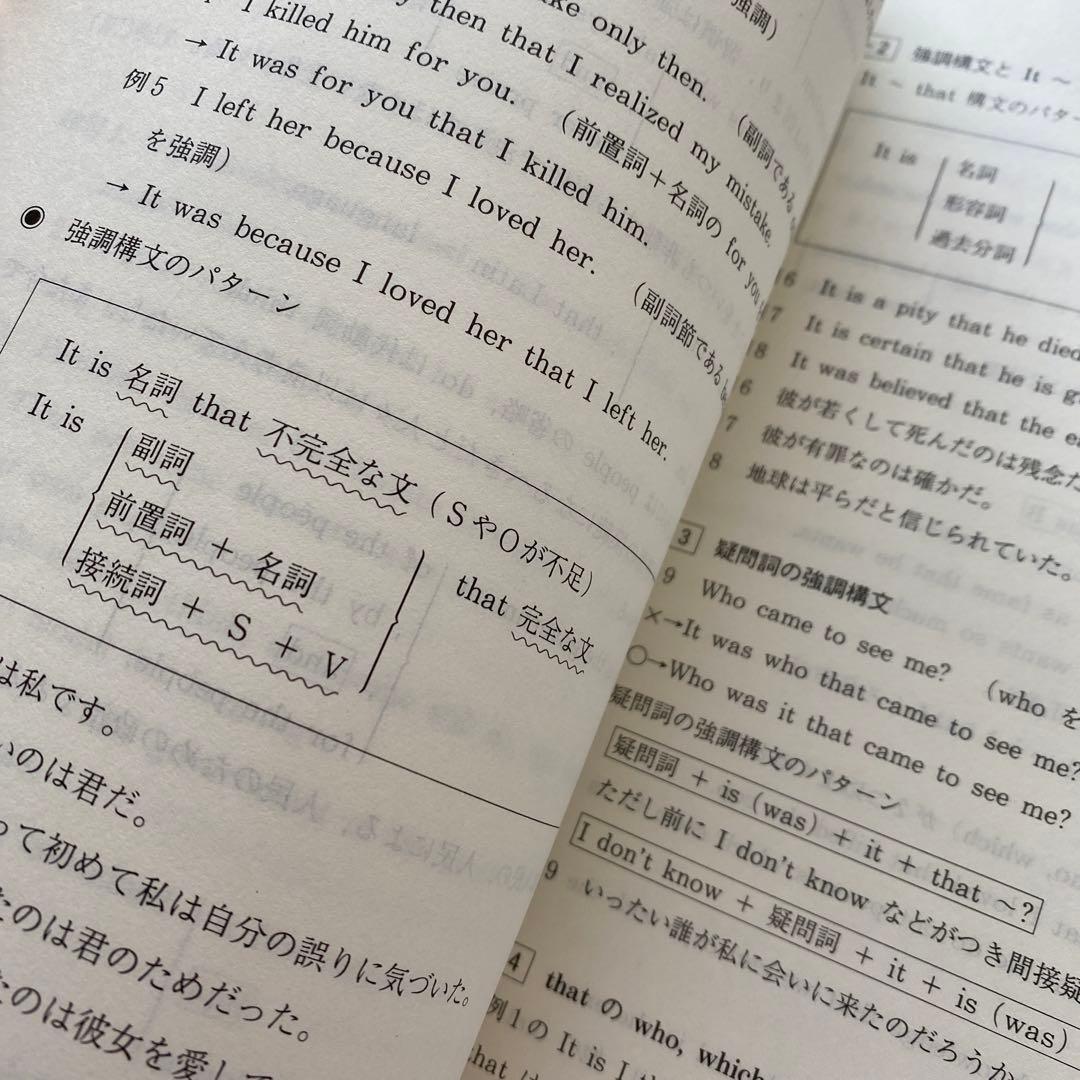 ke only then.
then that I realized my mistake.
I killed him for you.
(副詞である
→ It was for you that I killed him.
(前置詞＋名詞の for you
例5 I left her because I loved her.
を強調)
(副詞節である
→ It was because I loved her that I left her.
◉ 強調構文のパターン
It is 名詞 that 不完全な文 (SやOが不足)
It is
副詞
前置詞 ＋ 名詞
接続詞 ＋ S ＋ V
that 完全な文
は私です。
いのは君だ。
って初めて私は自分の誤りに気づいた。
たのは君のためだった。
たのは彼女を愛して
2 強調構文と It ～
It ～ that 構文のパター
It is
名詞
形容詞
過去分詞
6 It is a pity that he died
7 It is certain that he is
8 It was believed that the
6 彼が若くして死んだのは残念だ
7 彼が有罪なのは確かだ。
8 地球は平らだと信じられていた。
3 疑問詞の強調構文
9 Who came to see me? (who を
×→It was who that came to see me?
○→Who was it that came to see me?
疑問詞の強調構文のパターン
疑問詞 ＋ is (was) ＋ it ＋ that ～?
ただし前に I don't know などがつき間接疑
I don't know ＋ 疑問詞 ＋ it ＋ is (was)
9 いったい誰が私に会いに来たのだろうか
4 that の who, which
例1の It is I th
that は